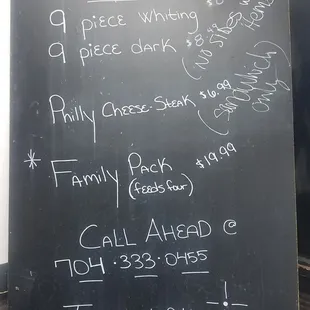 9 piece whiting
9 piece dark $8.
(No sides w/ them)
Philly Cheese Steak $6.99
(Sandwhich only)
* Family Pack $19.99
(feeds four)
Call Ahead @
704.333.0455